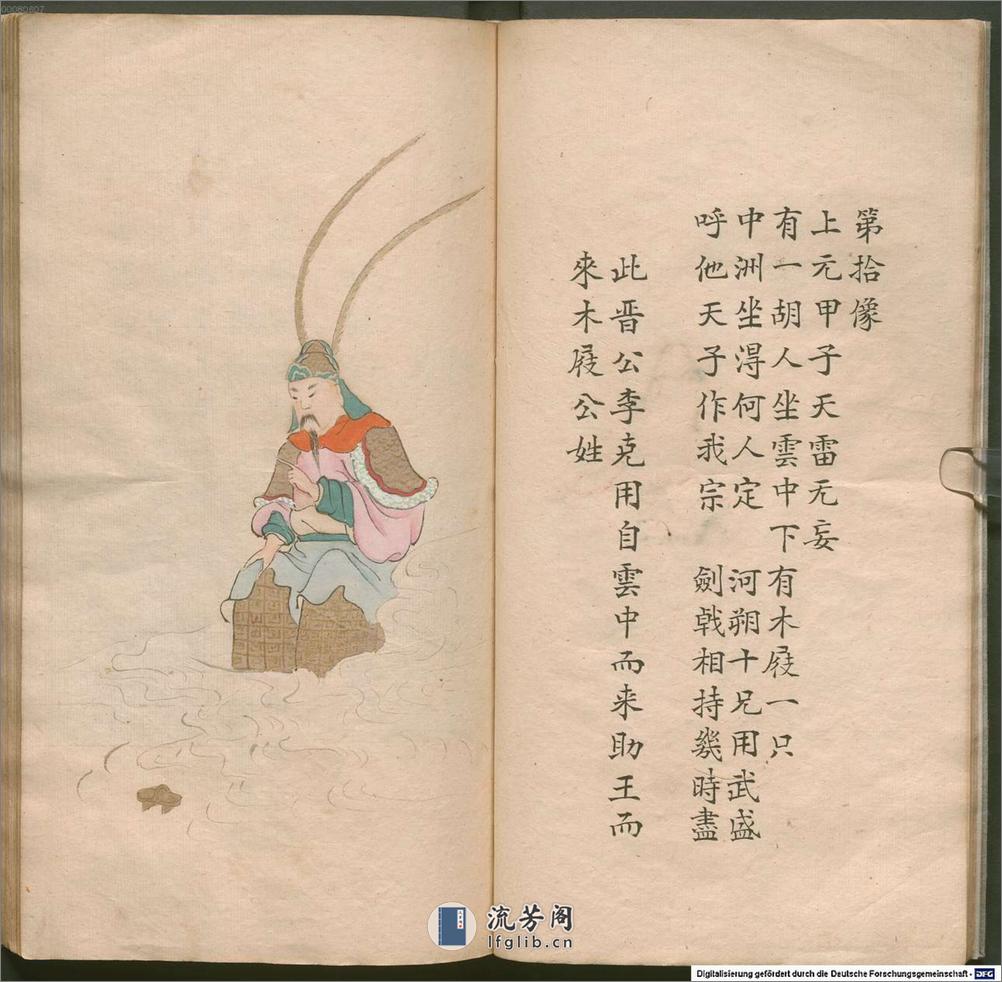 第拾像
上元甲子天雷无妄
有一胡人坐雲中下有木屐一只
中洲坐淂何人定 河朔十兄用武盛
呼他天子作我宗 劍戟相持幾時盡
此晋公李克用自雲中而来助王而
來木屐公姓
00080607
流芳阁
lfglib.cn
Digitalisierung gefördert durch die Deutsche Forschungsgemeinschaft - DFG